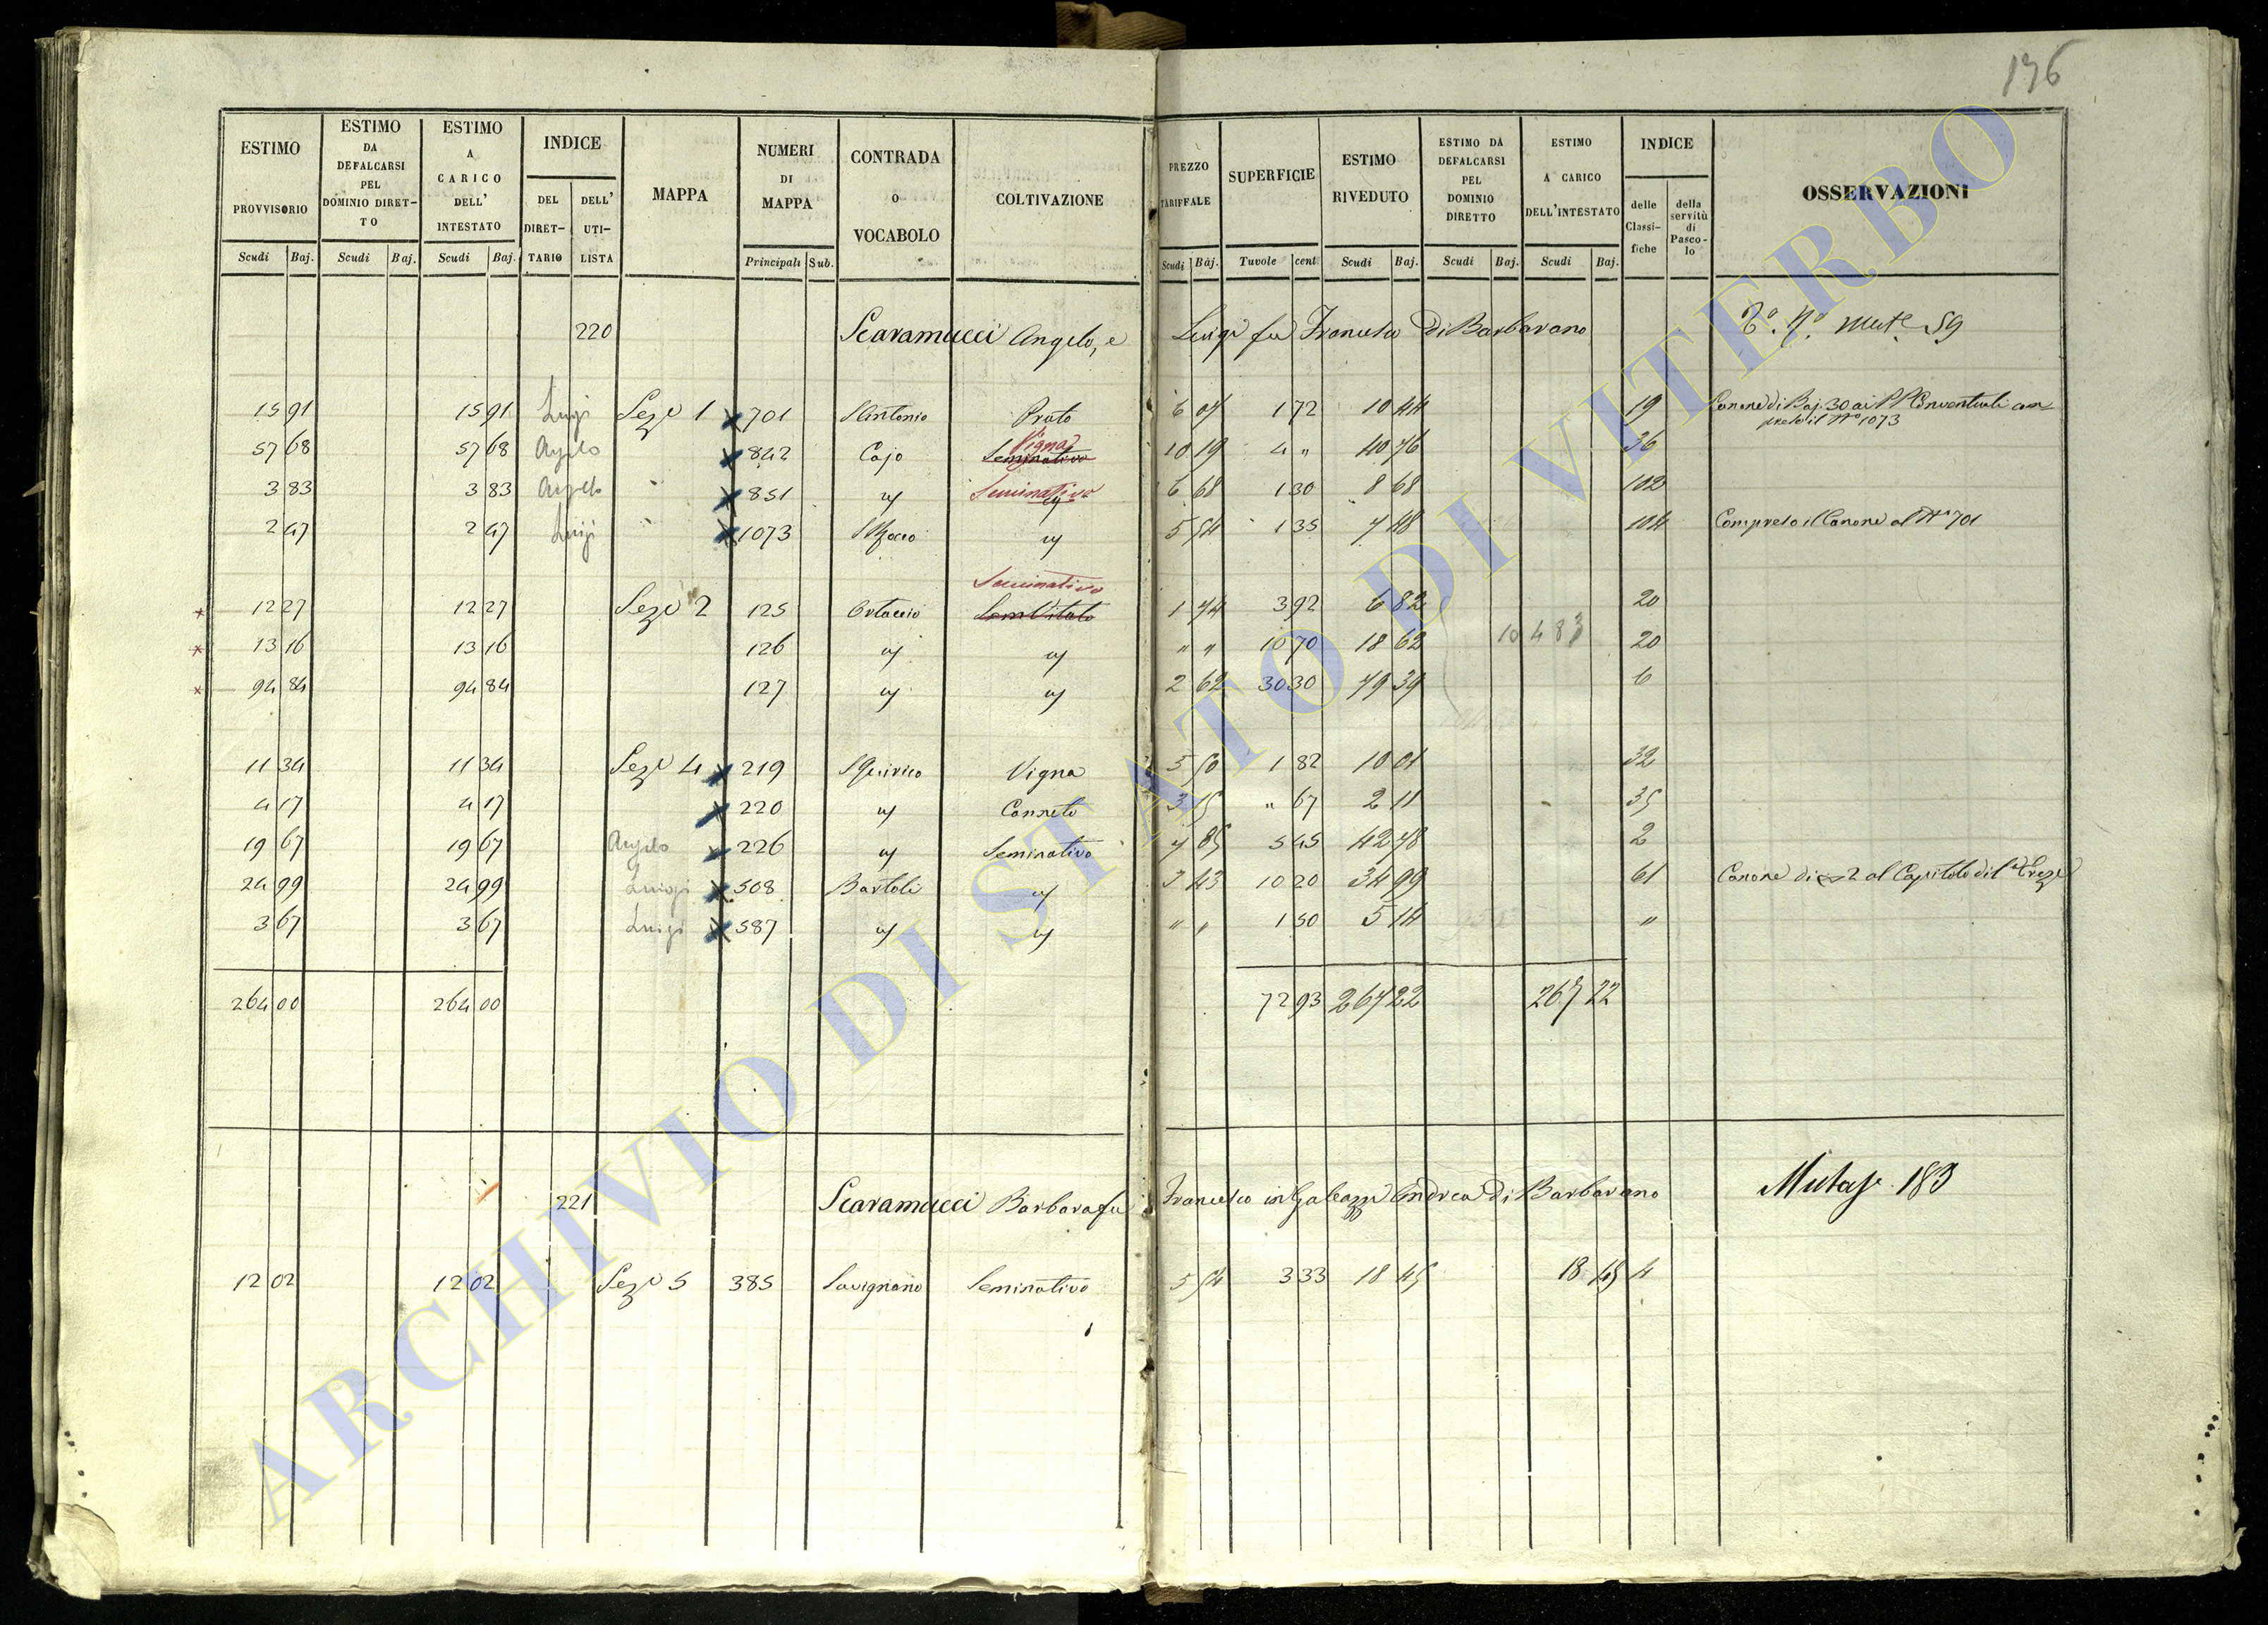 176
ESTIMO PROVVISORIO Scudi Baj.
ESTIMO DA DEFALCARSI PEL DOMINIO DIRET-TO Scudi Baj.
ESTIMO A CARICO DELL' INTESTATO Scudi Baj.
INDICE DEL DIRET-TARIO DELL' UTI-LISTA
MAPPA
NUMERI DI MAPPA Principali Sub.
CONTRADA O VOCABOLO
COLTIVAZIONE
PREZZO TARIFFALE Scudi Baj.
SUPERFICIE Tavole cent
ESTIMO RIVEDUTO Scudi Baj.
ESTIMO DA DEFALCARSI PEL DOMINIO DIRETTO Scudi Baj.
ESTIMO A CARICO DELL'INTESTATO Scudi Baj.
INDICE delle Classi-fiche della servitù di Pasco-lo
OSSERVAZIONI
220 Scaramucci Angelo, e Luigi fu Francesco di Barbarano
15 91 15 91 Luigi Sez.e 1 701 S Antonio Prato 6 07 1 72 10 44 19 Canone di Baj. 30 ai PP Conventuali com
preso il N° 1073
57 68 57 68 Angelo 842 Cajo Seminativo Vigna 10 19 4 " 40 76 36
3 83 3 83 Angelo " 851 " Seminativo 6 68 1 30 8 68 102
2 47 2 47 Luigi " 1073 S Rocco " 5 54 1 35 7 48 104 Compreso il Canone al N° 701
12 27 12 27 Sez.e 2 125 Ortaccio Sem Vitato Seminativo 1 74 3 92 6 82 20
13 16 13 16 126 " " " " 10 70 18 62 104 83 20
94 84 94 84 127 " " 2 62 30 30 79 39 6
11 34 11 34 Sez.e 4 219 S Quirico Vigna 5 50 1 82 10 01 32
4 17 4 17 220 " Canneto 3 15 " 67 2 11 35
19 67 19 67 Angelo 226 " Seminativo 7 85 5 45 42 78 2
24 99 24 99 Luigi 508 Bartoli " 3 43 10 20 34 99 61 Canone di 2 al Capitolo di
3 67 3 67 Luigi 587 " " " " 1 50 5 14 "
264 00 264 00 72 93 267 22 267 22
221 Scaramucci Barbara fu Francesco in Galeazzi Andrea di Barbarano Mutaz.e 183
12 02 12 02 Sez.e 5 385 Savignano Seminativo 5 54 3 33 18 45 18 45 4
ARCHIVIO DI STATO DI VITERBO